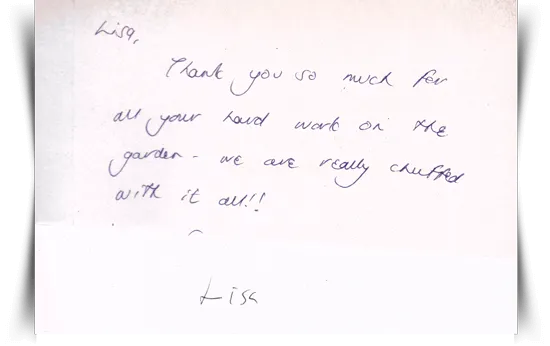 Lisa,
Thank you so much for
all your hard work on the
garden - we are really chuffed
with it all!!
Lisa